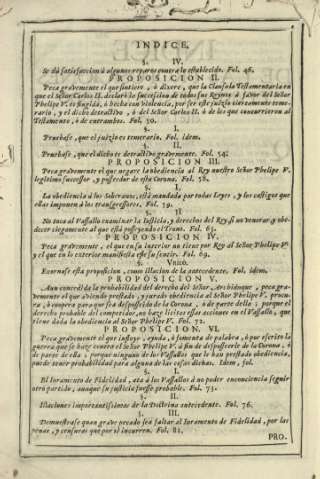 INDICE.
§. IV.
Se dá satisfaccion à algunos reparos contra lo establecido. Fol. 46.
PROPOSICION II.
Peca gravemente el que sintiere, ò dixere, que la Clausula Testamentaria en
que el Señor Carlos II. declarò la succession de todos sus Reynos à favor del Señor
Phelipe V. es fingida, ò hecha con violencia, por ser este juizio ciertamente teme-
rario, y el dicho detractivo, ò del Señor Carlos II. ò de los que concurrieron al
Testamento, ò de entrambos. Fol. 50.
§. I.
Pruebase, que el juizio es temerario. Fol. idem.
§. II.
Pruebase, que el dicho es detractivo gravemente. Fol. 54.
PROPOSICION III.
Peca gravemente el que negare la obediencia al Rey nuestro Señor Phelipe V.
legitimo successor, y posseedor de esta Corona. Fol. 58.
§. I.
La obediencia à los Soberanos, està mandada por todas Leyes, y los castigos que
ellas imponen à los transgressores. Fol. 59.
§. II
No toca al Vassallo examinar la Iusticia, y derechos del Rey, si no venerar, y obe-
decer ciegamente al que està posseyendo el Trono. Fol. 65.
PROPOSICION IV.
Peca gravemente, el que en su interior no tiene por Rey al Señor Phelipe V.
y el que en lo exterior manifiesta este su sentir. Fol. 69.
§. Vnico.
Exornase esta proposicion, como illacion de la antecedente. Fol. idem.
PROPOSICION V.
Aun concedida la probabilidad del derecho del Señor Archiduque, peca gra-
vemente el que abiendo prestado, y jurado obediencia al Señor Phelipe V. procu-
ra, ò coopera para que sea desposseido de la Corona, ò de parte de ella; porque el
derecho probable del competidor, no haze licitas essas acciones en el Vassallo, que
tiene dada la obediencia al Señor Phelipe V. Fol. 72.
PROPOSICION. VI.
Peca gravemente el que influye, ayuda, ò fomenta de palabra, ò por escrito la
guerra que se haze contra el Señor Phelipe V. à fin de desposseerle de la Corona, ò
de parte de ella; porque ninguno de los Vassallos que le han prestado obediencia,
puede tener probabilidad para alguna de las cosas dichas. Idem, fol.
§. I.
El Iuramento de Fidelidad, ata à los Vassallos à no poder en conciencia seguir
otro partido, aunque su justicia fuesse probable. Fol. 73.
§. II.
Illaciones importantissimas de la Doctrina antecedente. Fol. 76.
§. III.
Demuestrase quan grave pecado sea faltar al Iuramento de Fidelidad, por las
penas, y censuras que por el incurren. Fol. 81.
PRO.